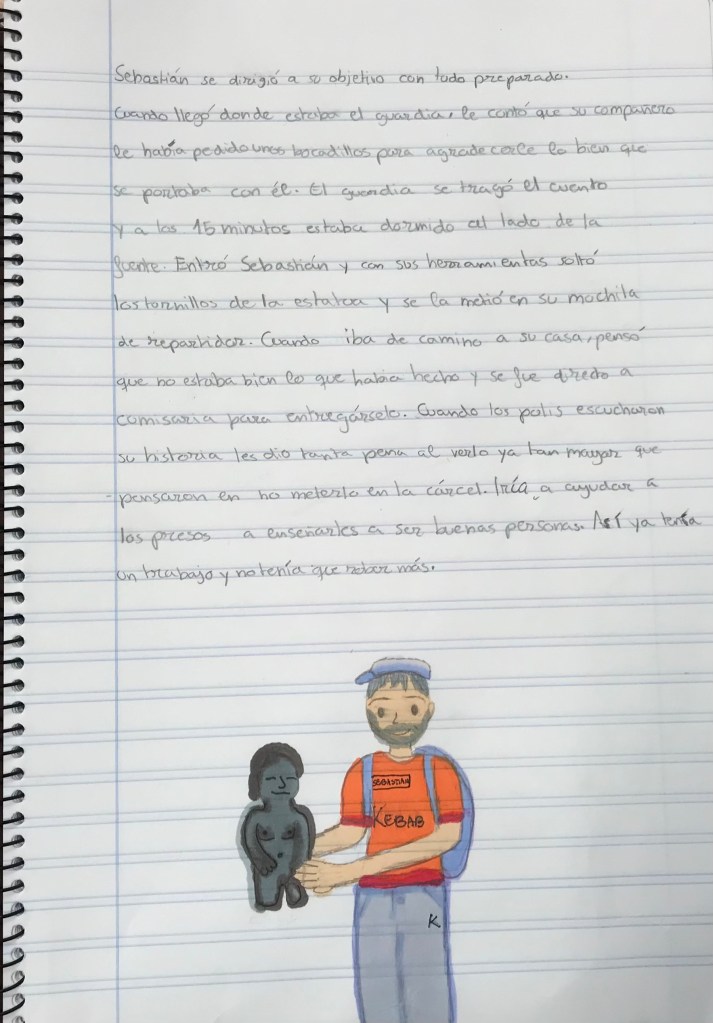 Sebastián se dirigió a su objetivo con todo preparado.
Cuando llegó donde estaba el guardia, le contó que su compañero
le había pedido unos bocadillos para agradecerle lo bien que
se portaba con él. El guardia se tragó el cuento
y a los 15 minutos estaba dormido al lado de la
fuente. Entró Sebastián y con sus herramientas soltó
los tornillos de la estatua y se la metió en su mochila
de repartidor. Cuando iba de camino a su casa, pensó
que no estaba bien lo que había hecho y se fue directo a
comisaria para entregárselo. Cuando los polis escucharon
su historia les dio tanta pena al verlo ya tan mayor que
pensaron en no meterlo en la cárcel. Iría a ayudar a
los presos a enseñarles a ser buenas personas. Así ya tenía
un trabajo y no tenía que robar más.
SEBASTIAN
KEBAB
K